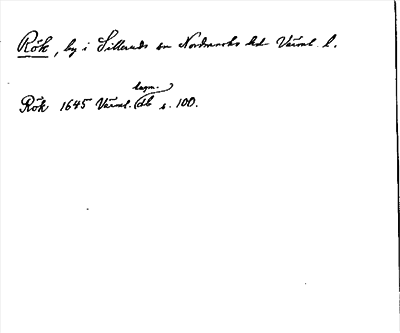 Rök, by i Silleruds sn Nordmarks hd Värml. l.
Rök 1645 Värml. lagm. db s. 100.